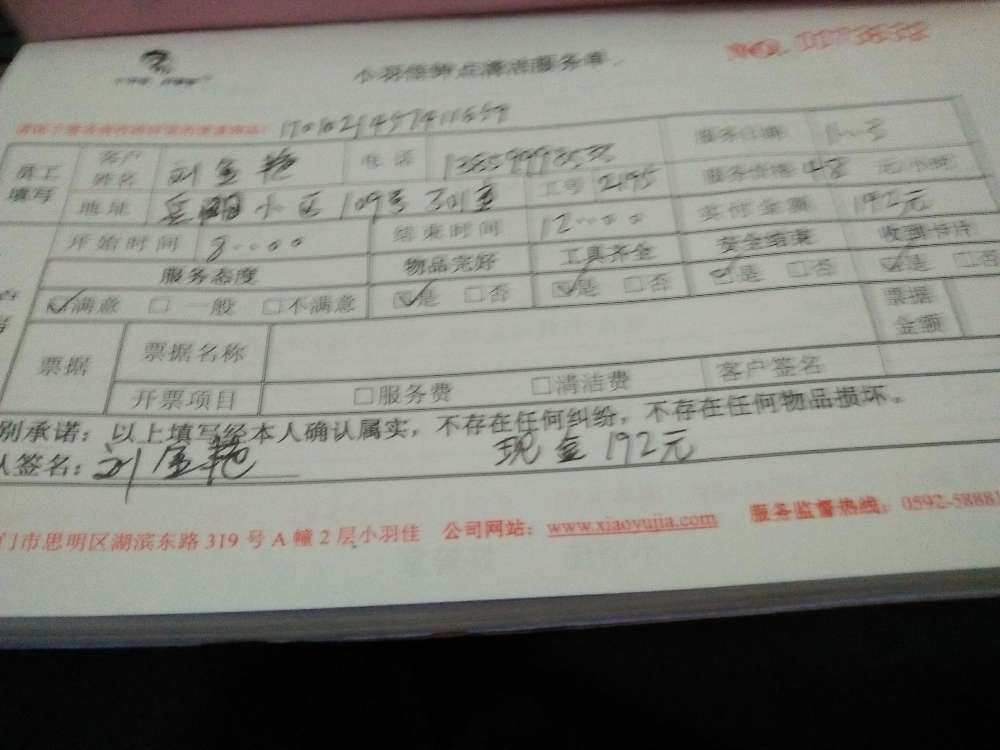 小羽佳钟点清洁服务单
员工填写 客户姓名 刘金艳 电话 服务日期
地址 小区109号301室 工号 2195 服务价格 48 元/小时
开始时间 8:00 结束时间 12:00 实付金额 192元
服务态度 物品完好 工具齐全 安全结束 收到卡片
☑满意 □一般 □不满意 ☑是 □否 ☑是 □否 ☑是 □否 ☑是 □否
票据 票据名称 票据金额
开票项目 □服务费 □清洁费 客户签名
别承诺：以上填写经本人确认属实，不存在任何纠纷，不存在任何物品损坏。
人签名：刘金艳 现金192元
门市思明区湖滨东路319号A幢2层小羽佳 公司网站：www.xiaoyujia.com 服务监督热线：0592-5888